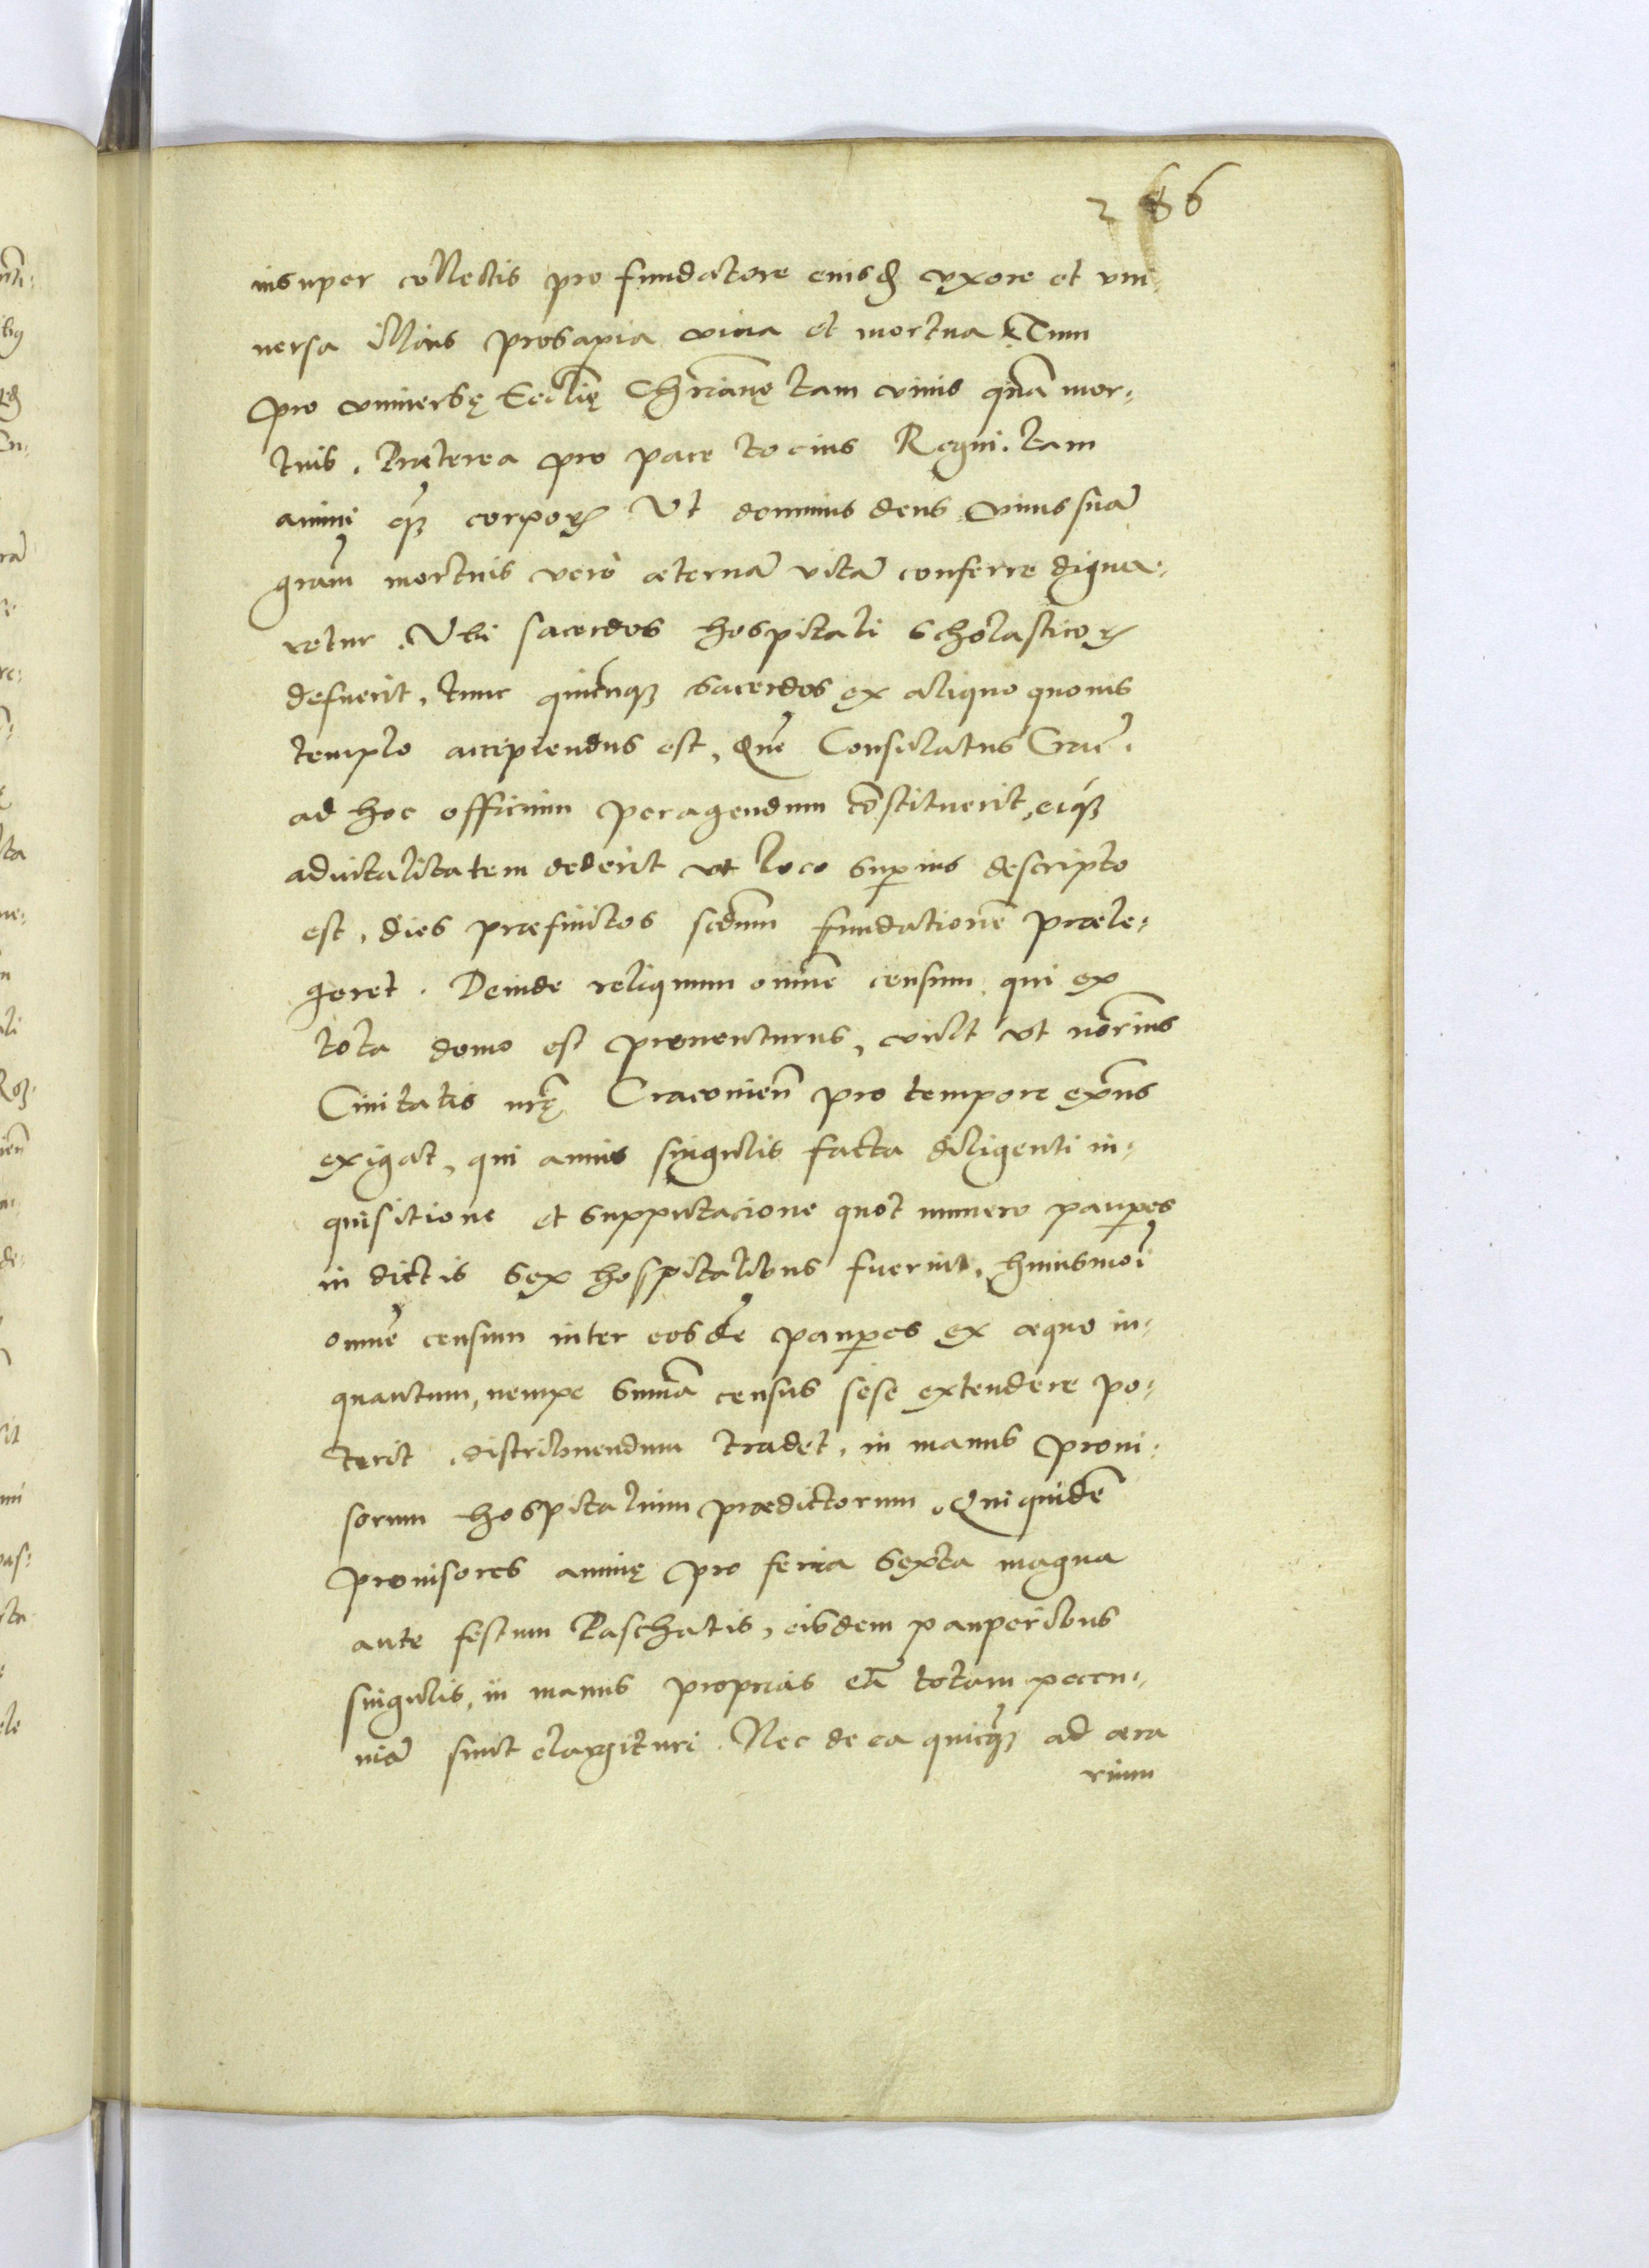 266
insuper collectis pro fundatore eiusq₃ uxore et vni-
uersa illius prosapia viua et mortua. Tum
pro vniuersę Ecclīę Chrīanę tam viuis quā mor-
tuis. Præterea pro pace tocius Regni. tam
animi q̃₃ corpoꝝ. Vt dominus deus viuis suā
grām mortuis verò æternā vitā conferre digna-
retur. Vbi sacerdos hospitali scholasticoꝝ
defuerit, tunc quicunq₃ sacerdos ex aliquo quouis
templo accipiendus est, quē Consulatus Crac̃.
ad hoc officium peragendum cōstituerit, eiq₃
aduitalitatem dederit vt loco sup̱ius descripto
est, dies præfinitos scdum fundationē præle-
geret. Deinde reliquum omnē censum qui ex
tota domo est prouenturus, vult vt nōrius
Ciuitatis nrę Cracouien̄ pro tempore ex̄ns
exigat, qui annis singulis facta diligenti in-
quisitione et supputacione quot numero paup̱es
in dictis sex hospitalibus fuerint, huiusmōi
omnē censum inter eosdē paup̱es ex æquo in-
quantum, nempe sum̄a census sese extendere po-
terit distribuendum tradet, in manus proui-
sorum hospitalium prædictorum. Qui quidē
prouisores annuę pro feria sexta magna
ante festum Paschatis, eisdem pauperibus
singulis, in manus proprias eā totam pecu-
niā sunt elargituri. Nec de ea quicq̃₃ ad æra
rium